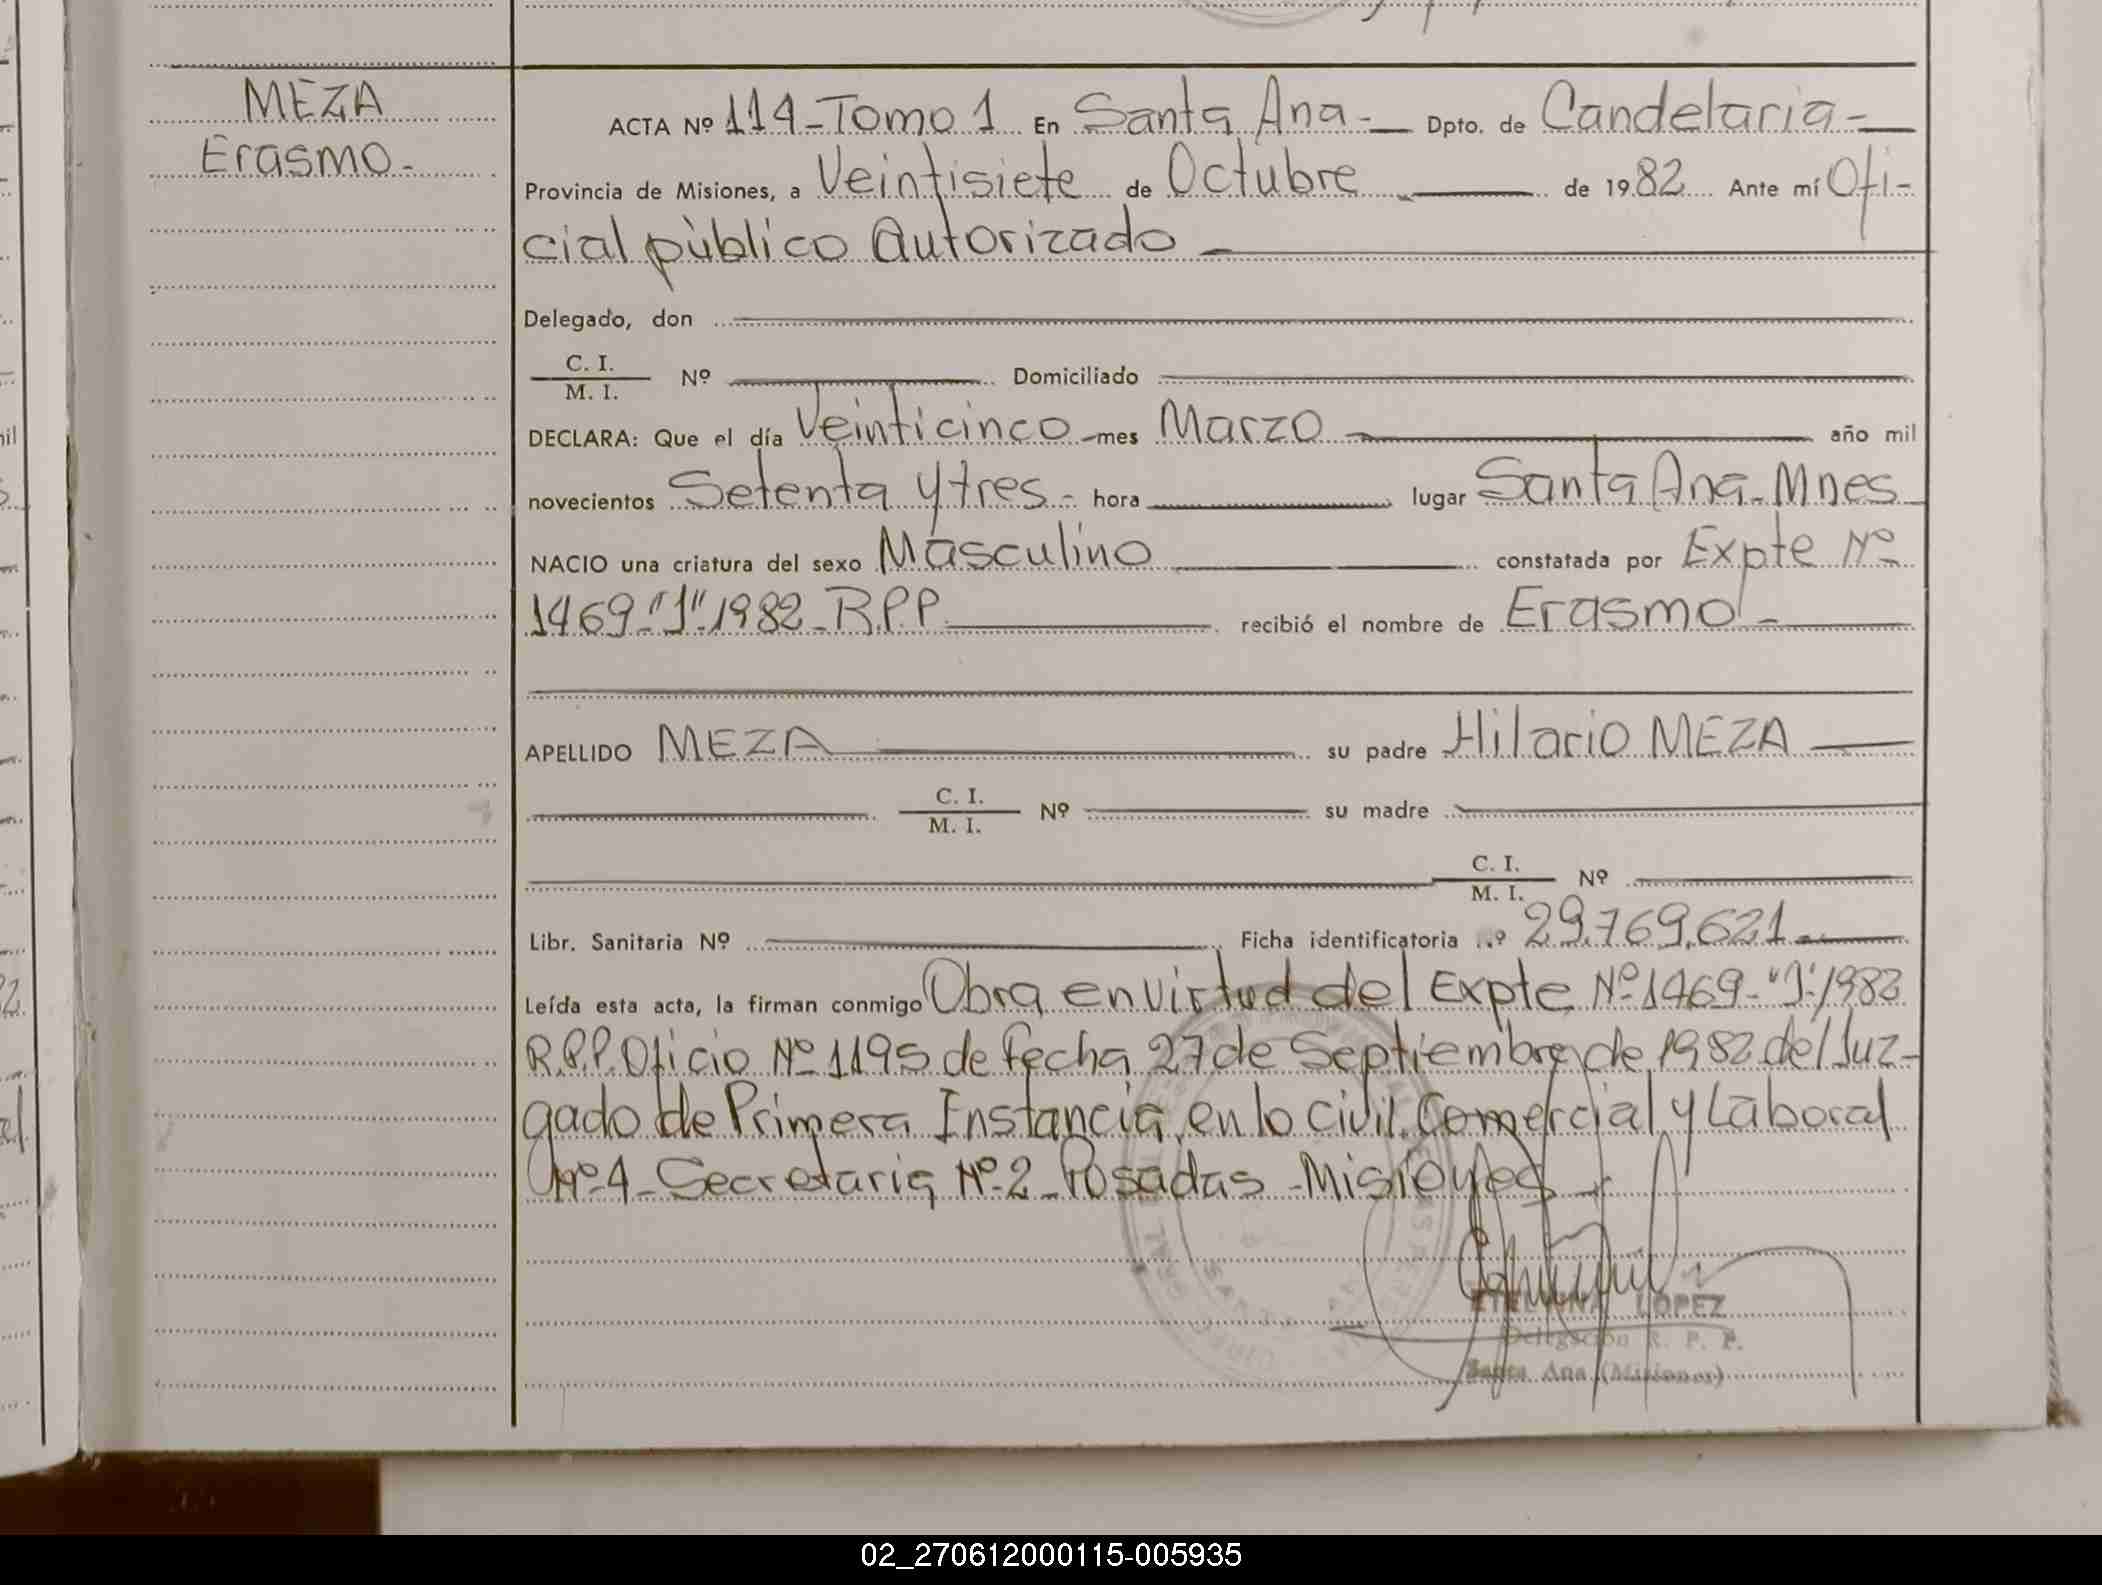 MEZA
Erasmo-
ACTA Nº 114-Tomo 1 En Santa Ana- Dpto. de Candelaria-
Provincia de Misiones, a Veintisiete de Octubre de 1982 Ante mí Ofi-
cial pùblico Autorizado
Delegado, don
C. I.
M. I. Nº Domiciliado
DECLARA: Que el día Veinticinco mes Marzo año mil
novecientos Setenta y tres- hora lugar Santa Ana-Mnes
NACIO una criatura del sexo Masculino constatada por Expte Nº
1469-"J"-1982-R.P.P. recibió el nombre de Erasmo-
APELLIDO MEZA su padre Hilario MEZA
C. I.
M. I. Nº su madre
C. I.
M. I. Nº
Libr. Sanitaria Nº Ficha identificatoria nº 29.769.621
Leída esta acta, la firman conmigo Obra en virtud del Expte Nº 1469-"J"/1982
R.P.P. Oficio Nº 1195 de fecha 27 de Septiembre de 1982 del Juz-
gado de Primera Instancia, en lo Civil, Comercial y Laboral
Nº 4-Secretaria Nº 2-Posadas-Misiones-
ETELVINA LOPEZ
Delegación R. P. P.
Santa Ana (Misiones)
02_270612000115-005935